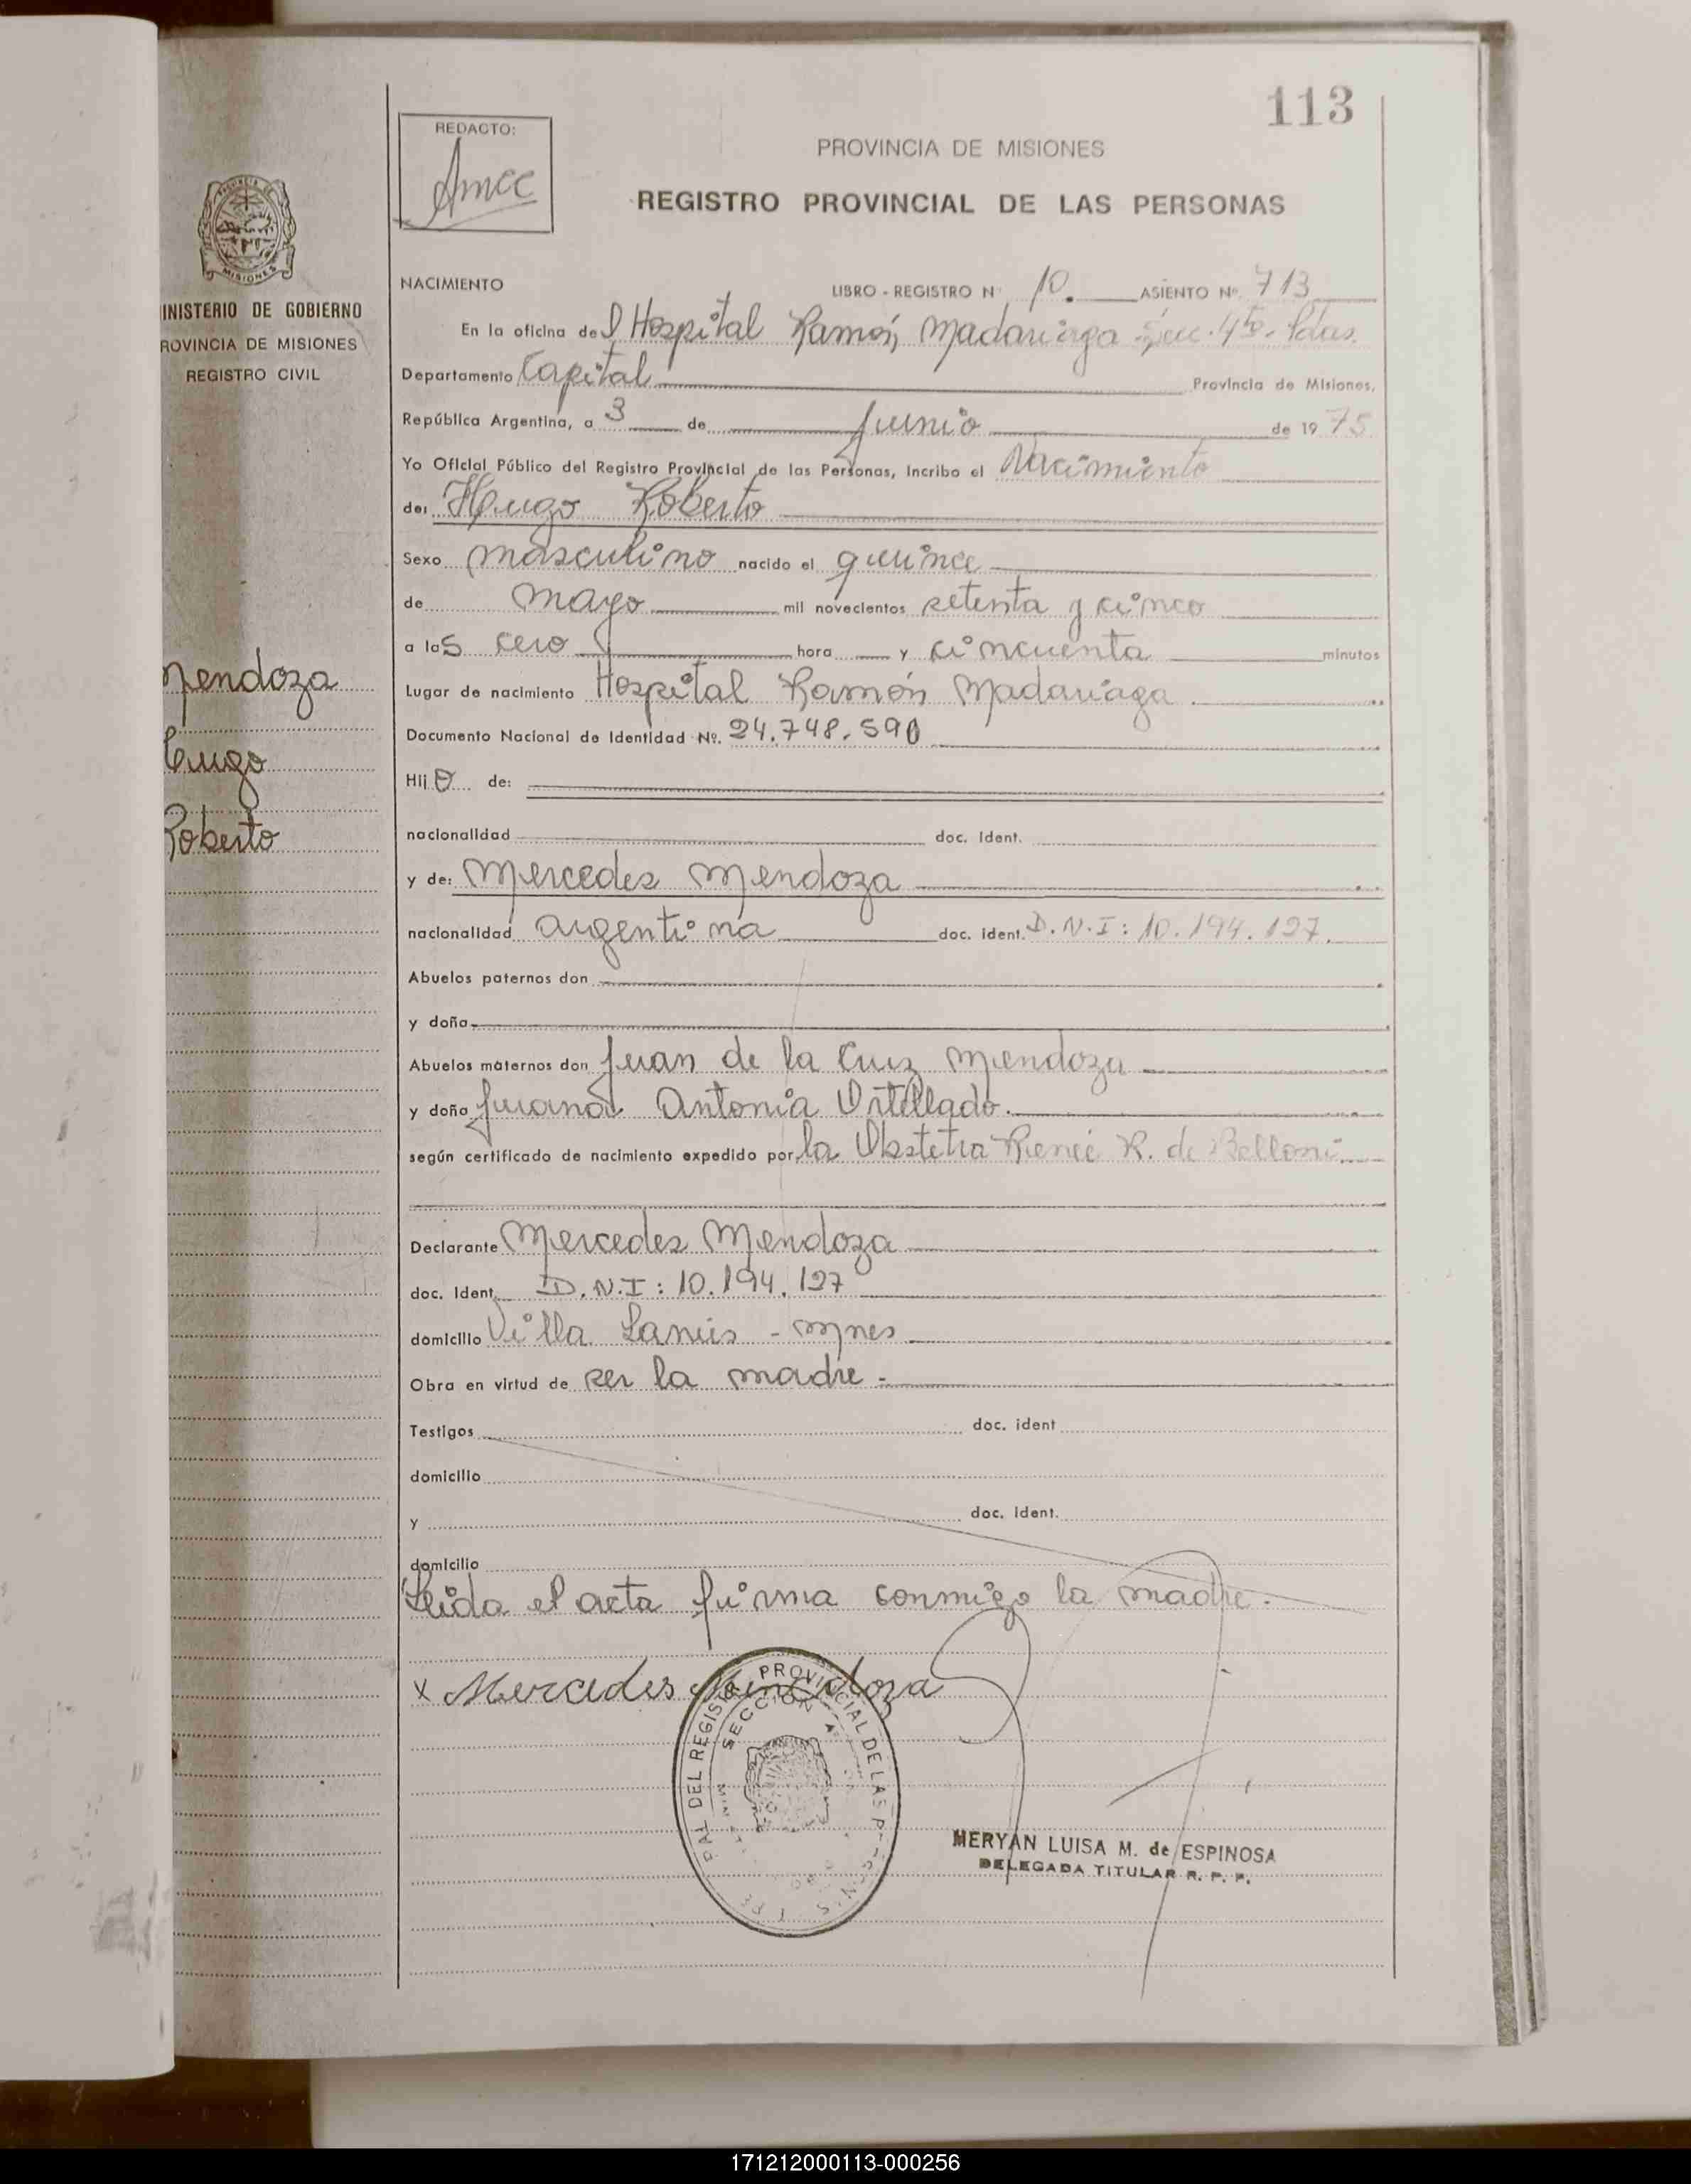 113
REDACTO:
Amcc
PROVINCIA DE MISIONES
REGISTRO PROVINCIAL DE LAS PERSONAS
MISIONES
INISTERIO DE GOBIERNO
ROVINCIA DE MISIONES
REGISTRO CIVIL
Mendoza
Hugo
Roberto
NACIMIENTO LIBRO - REGISTRO Nº 10. ASIENTO Nº. 713
En la oficina del Hospital Ramón Madariaga Secc. 4ta. Pdas.
Departamento Capital Provincia de Misiones.
República Argentina, a 3 de Junio de 1975
Yo Oficial Público del Registro Provincial de las Personas, Incribo el Nacimiento
de: Hugo Roberto
Sexo masculino nacido el quince
de mayo mil novecientos setenta y cinco
a las cero hora y cincuenta minutos
Lugar de nacimiento Hospital Ramón Madariaga.
Documento Nacional de Identidad Nº. 24.748.590
Hijo de:
nacionalidad doc. Ident.
y de: Mercedes Mendoza
nacionalidad argentina doc. ident. D.N.I: 10.194.127.
Abuelos paternos don
y doña
Abuelos maternos don Juan de la Cruz Mendoza
y doña Juana Antonia Ortellado.
según certificado de nacimiento expedido por la Obstetra Reneé R. de Belloni
Declarante Mercedes Mendoza
doc. Ident. D.N.I: 10.194.127
domicilio Villa Lanús - Mnes
Obra en virtud de ser la madre -
Testigos doc. ident
domicilio
y doc. ident.
domicilio
Leida el acta firma conmigo la madre.
x Mercedes Mendoza
PROVINCIAL DE LAS
DEL REGIS
SECCION 4ª
MERYAN LUISA M. de ESPINOSA
DELEGADA TITULAR R. P. P.
171212000113-000256